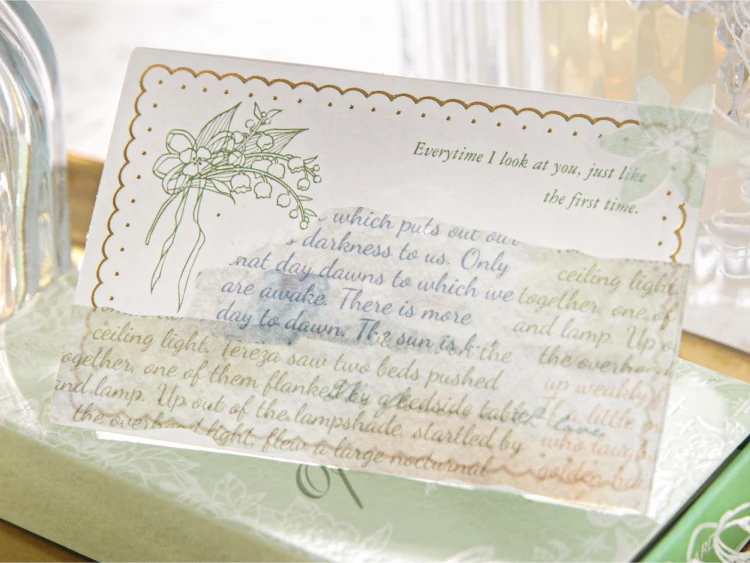 Everytime I look at you, just like
the first time.
which puts out our
darkness to us. Only
day dawns to which we
are awake. There is more
day to dawn. The sun is
ceiling light. Tereza saw two beds pushed
together, one of them flanked by a bedside table
and lamp. Up out of the lampshade, startled by
the overhead light, flew a large nocturnal
ceiling light.
together, one of
and lamp. Up
the
up weakly
a little
who
golden